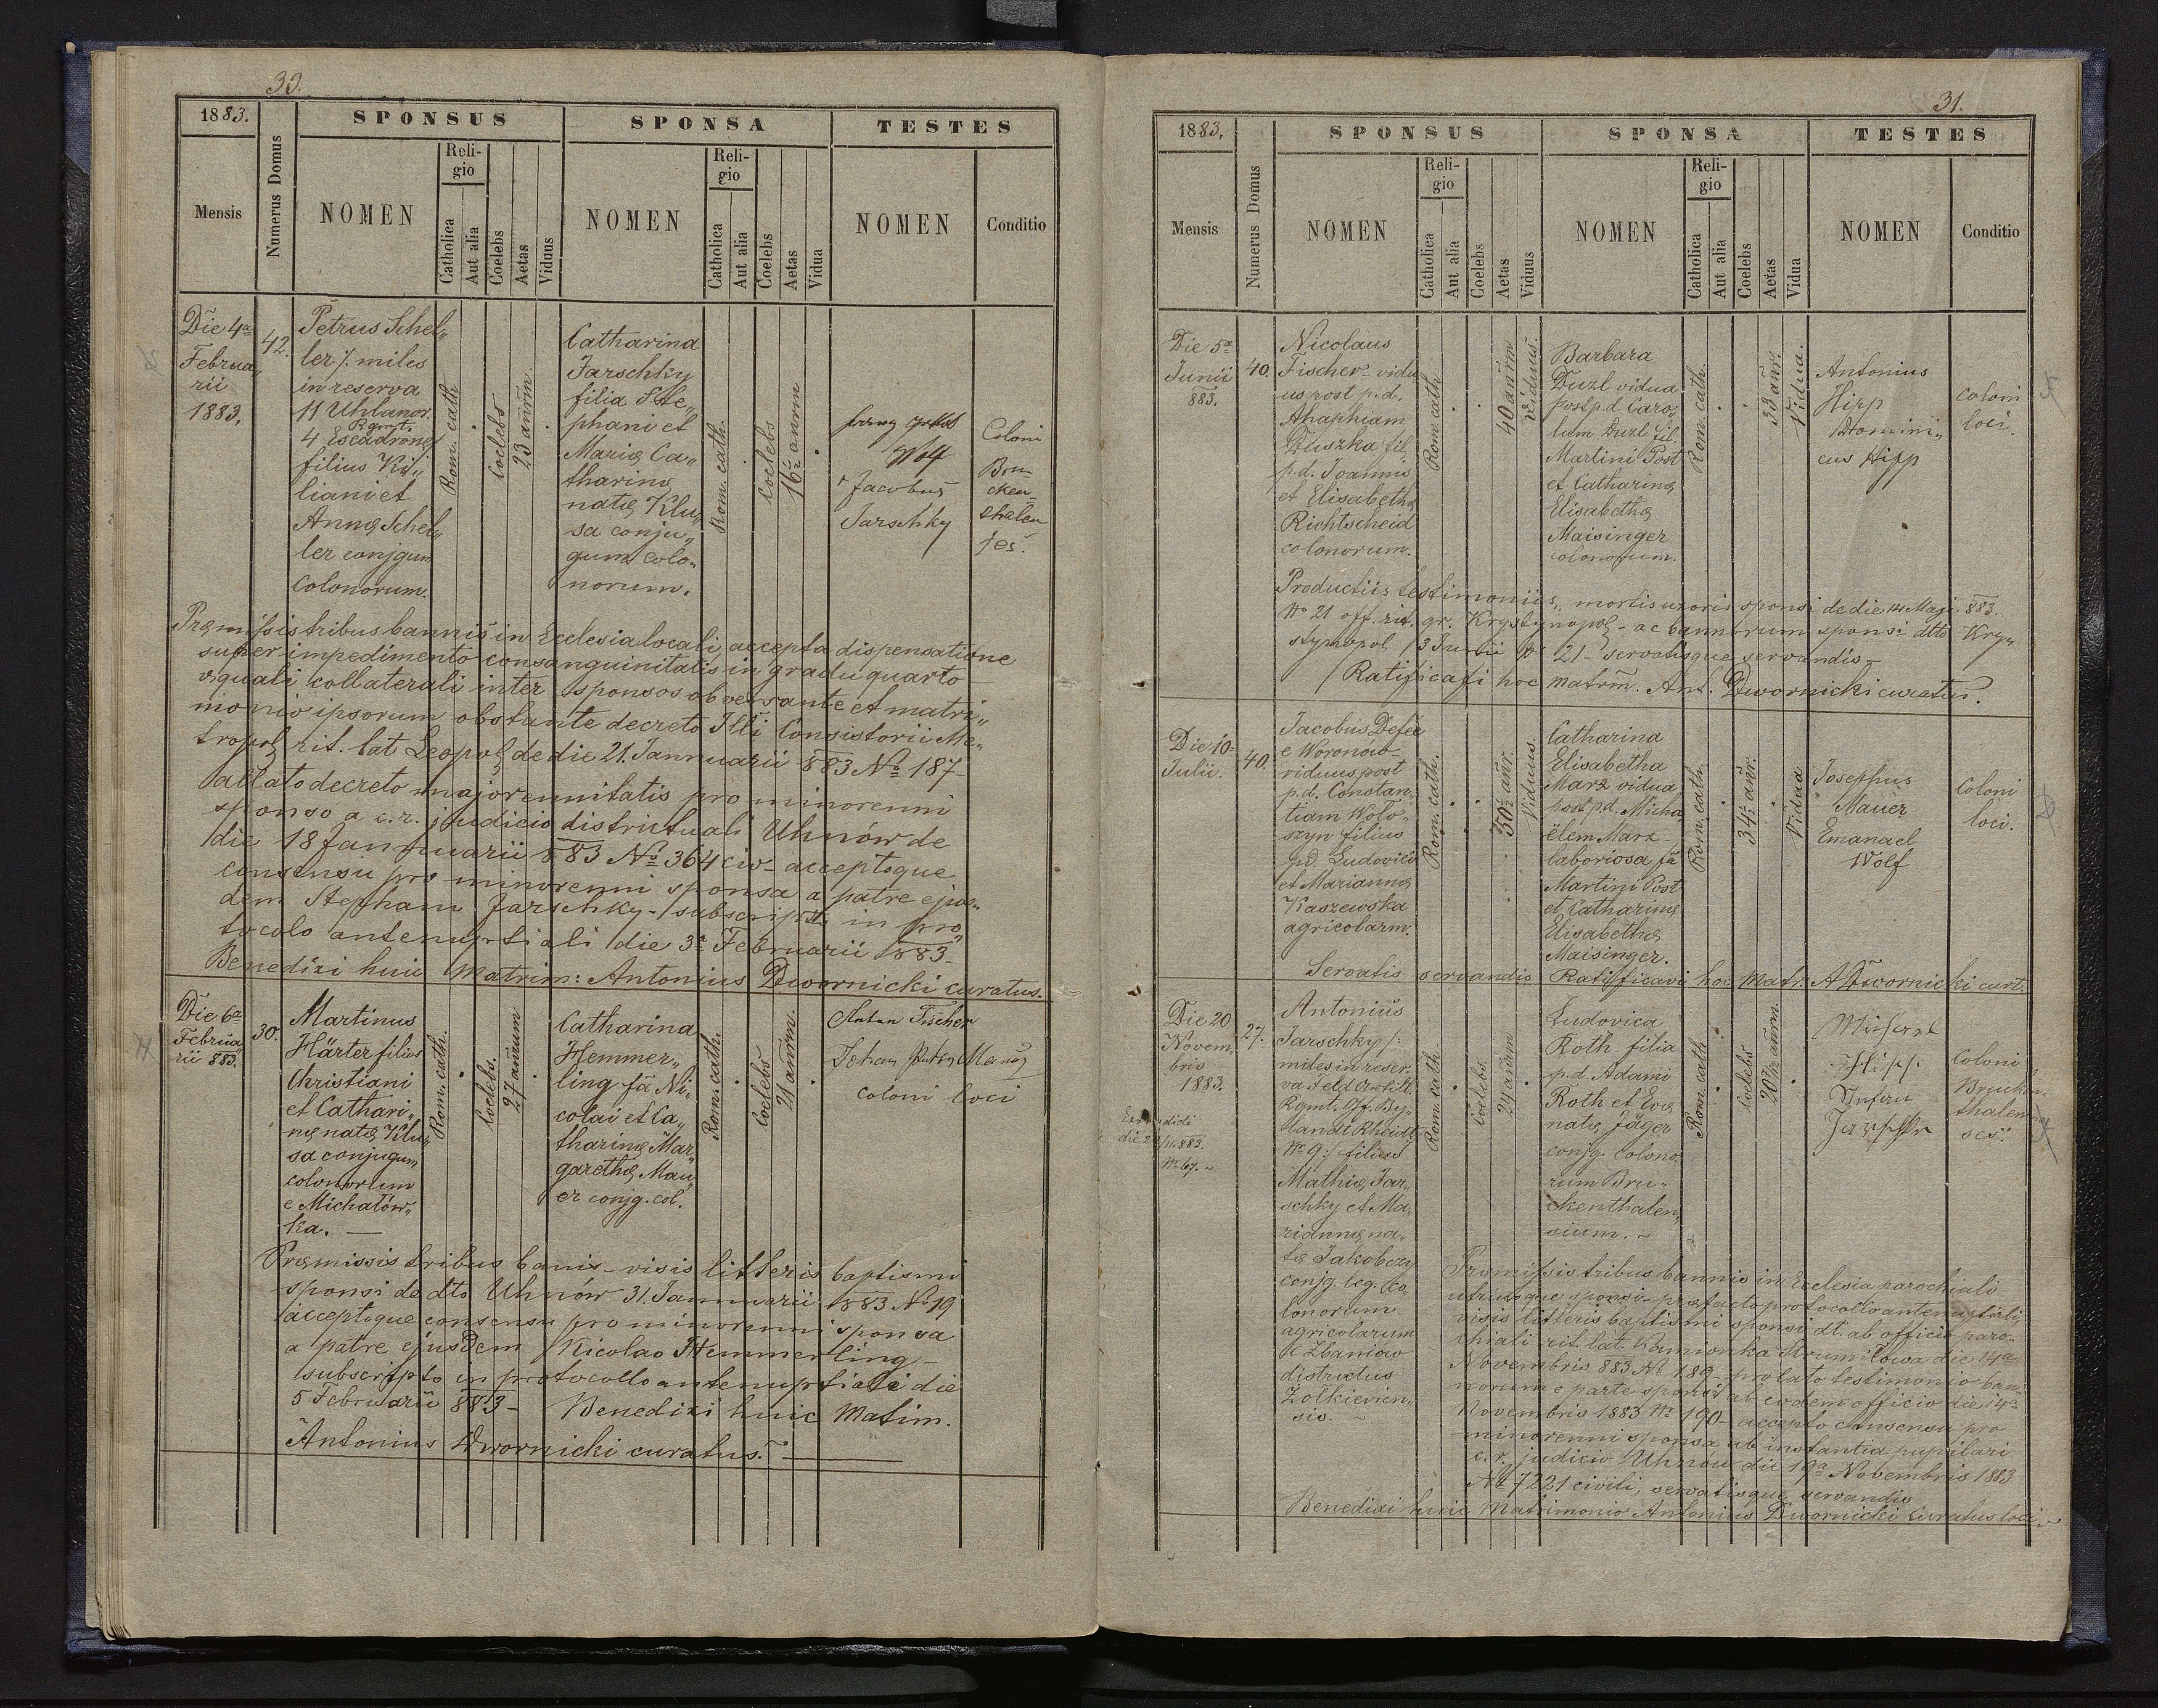 30.
1883.
SPONSUS
SPONSA
TESTES
Mensis
Numerus Domus
NOMEN
Religio
Catholica
Aut alia
Coelebs
Aetas
Viduus
NOMEN
Religio
Catholica
Aut alia
Coelebs
Aetas
Vidua
NOMEN
Conditio
Die 4a
Februa„
rii
1883.
42.
Petrus Schel„
ler /. miles
in reserva
11 Uhlanor.
Rgmt.
4 Escadrone/
filius Ki„
liani et
Annę Schel„
ler conjgum
colonorum.
Rom. cath
Coelebs
23 annrm.
Catharina
Jarschky
filia Ste„
phani et
Marię Ca„
tharinę
natę Klu„
sa conju„
gum colo„
norum.
Rom. cath.
Coelebs
16½ annrm
Wolf
Jacobus
Jarschky
Coloni
Bru„
cken„
thalen
ses.
Pręmissis tribus bannis in Ecclesia locali, accepta dispensatione
super impedimento consanguinitatis in gradu quarto
ęquali collaterali inter sponsos obversante et matri„
monio ipsorum obstante decreto Illi Consistorii Me„
tropol rit. lat Leopol de die 21. Jannuarii 883 No 187-
allato decreto majorennitatis pro minorenni
sponso a c. r. judicio districtuali Uhnów de
die 18 Jannuarii 883 No 364 civ - acceptoque
consensu pro minorenni sponsa a patre ejus„
dem Stephano Jarschky - subscripto in pro„
tocolo antenuptiali die 3a Februarii 1883-
Benedixi huic Matrim: Antonius Dwornicki curatus.
Die 6a
Februa„
rii 883.
30.
Martinus
Härter filius
Christiani
et Cathari„
nę natę Klu„
sa conjugum
colonorum
e Michałów„
ka. —
Rom. cath.
Coelebs.
27 annrum
Catharina
Hemmer„
ling fa Ni„
colai et Ca„
tharinę Mar„
garethę Mau„
er conjg. col.
Rom. cath.
Coelebs
21 annrm.
Anton Fischer
Johan
coloni loci
Pręmissis tribus banis - visis litteris baptismi
sponsi de dto Uhnów 31. Jannuarii 1883 No 19
acceptoque consensu pro minorenni sponsa
a patre ejusdem Nicolao Hemmerling -
subscripto in protocollo antenuptiali die
5 Februarii 883 - Benedixi huic Matim.
Antonius Dwornicki curatus. —
31.
1883.
SPONSUS
SPONSA
TESTES
Mensis
Numerus Domus
NOMEN
Religio
Catholica
Aut alia
Coelebs
Aetas
Viduus
NOMEN
Religio
Catholica
Aut alia
Coelebs
Aetas
Vidua
NOMEN
Conditio
Die 5a
Junii
883.
40.
Nicolaus
Fischer - vidu„
us post p. d.
Ahaphiam
Duszka fil.
p. d. Joannis
et Elisabethę
Richtscheid
colonorum.
Rom. cath.
40 annrm
Viduus.
Barbara
Duzl vidua
post p. d. Caro„
lum Duzl fil.
Martini Post
et Catharinę
Elisabethę
Maisinger
colonorum.
Rom. cath.
33 annr.
Vidua.
Antonius
Hipp
Domini„
cus Hipp
coloni
loci.
Productiis testimoniis, mortis uxoris sponsi de die 14 Maji 883.
No 21 off. rit. gr. Krystynopol - ac bannorum sponsi dtto Kry„
stynopol 3 Junii No 21 - servatisque servandis -
Ratificafi hoc Matrm. Ant. Dwornicki curatus.
Die 10
Julii.
40.
Jacobus Defée
e Woronow
viduus post
p. d. Constan„
tiam Woło„
szyn filius
pd. Ludovici
et Mariannę
Kaszewska
agricolarm.
Rom. cath.
50½ annr.
Viduus.
Catharina
Elisabetha
Marx vidua
post pd. Micha„
ëlem Marx -
laboriosa fa
Martini Post
et Catharinę
Elisabethę
Maisinger.
Rom. cath.
34½ annr.
Vidua
Josephus
Mauer
Emanael
Wolf
Coloni
loci.
Servatis servandis Ratifficavi hoc Matr. A Dwornicki curt.
Die 20
Novem„
bris
1883.
27.
Antonius
Jarschky /:
miles in reser„
va Feld Artill.
Rgmt. Gf. Bey„
landt Rheidt
No 9:/ filius
Mathię Jar„
schky et Ma„
riannę na„
tę Jakobczy
conjg. leg. Co„
lonorum
agricolarum
e Zbaniow
districtus
Zołkievien„
sis. —
Rom. cath
Coelebs.
29 annrm
Ludovica
Roth filia
p. d. Adami
Roth et Evę
natę Jäger
conjg. Colono„
rum Bru„
ckenthalen„
sium. —
Rom. cath
Coelebs
20 annrm.
Hipp
Joseph
Coloni
Brucken„
thalen„
ses.
die 20/11. 883.
No 67. —
Premissis tribus bannis in Ecclesia parochiali
utriusque sponsi - prefacto protocollo antenuptiali,
visis litteris baptismi sponsi dt. ab officio paro„
chiali rit. lat. Kamionka Strumiłowa die 14a
Novembris 883. No 189 - probato testimonio ban„
norum e parte sponsi ab eodem officio die 14a
Novembris 1883 No 190 - accepto consensu pro
minorenni sponsa ab instantia pupilari
c. r. judicio Uhnów die 19a Novembris 1883
No 7221 civili, servatisque servandis
Benedixi huic Matrimonio Antonius Dwornicki Curatus loci. —